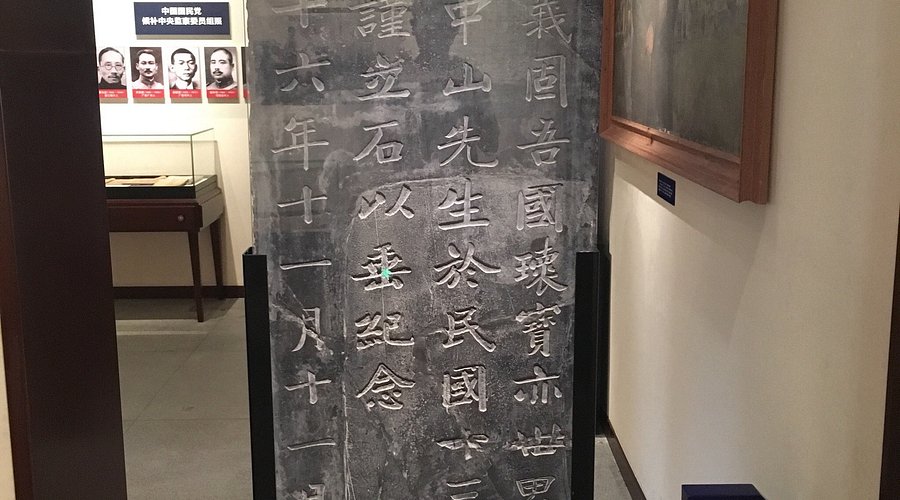 中國國民党
候补中央监察委员组照
義固吾國瓌寶亦世界
中山先生於民國十三
謹立石以垂紀念
十六年十一月十一日